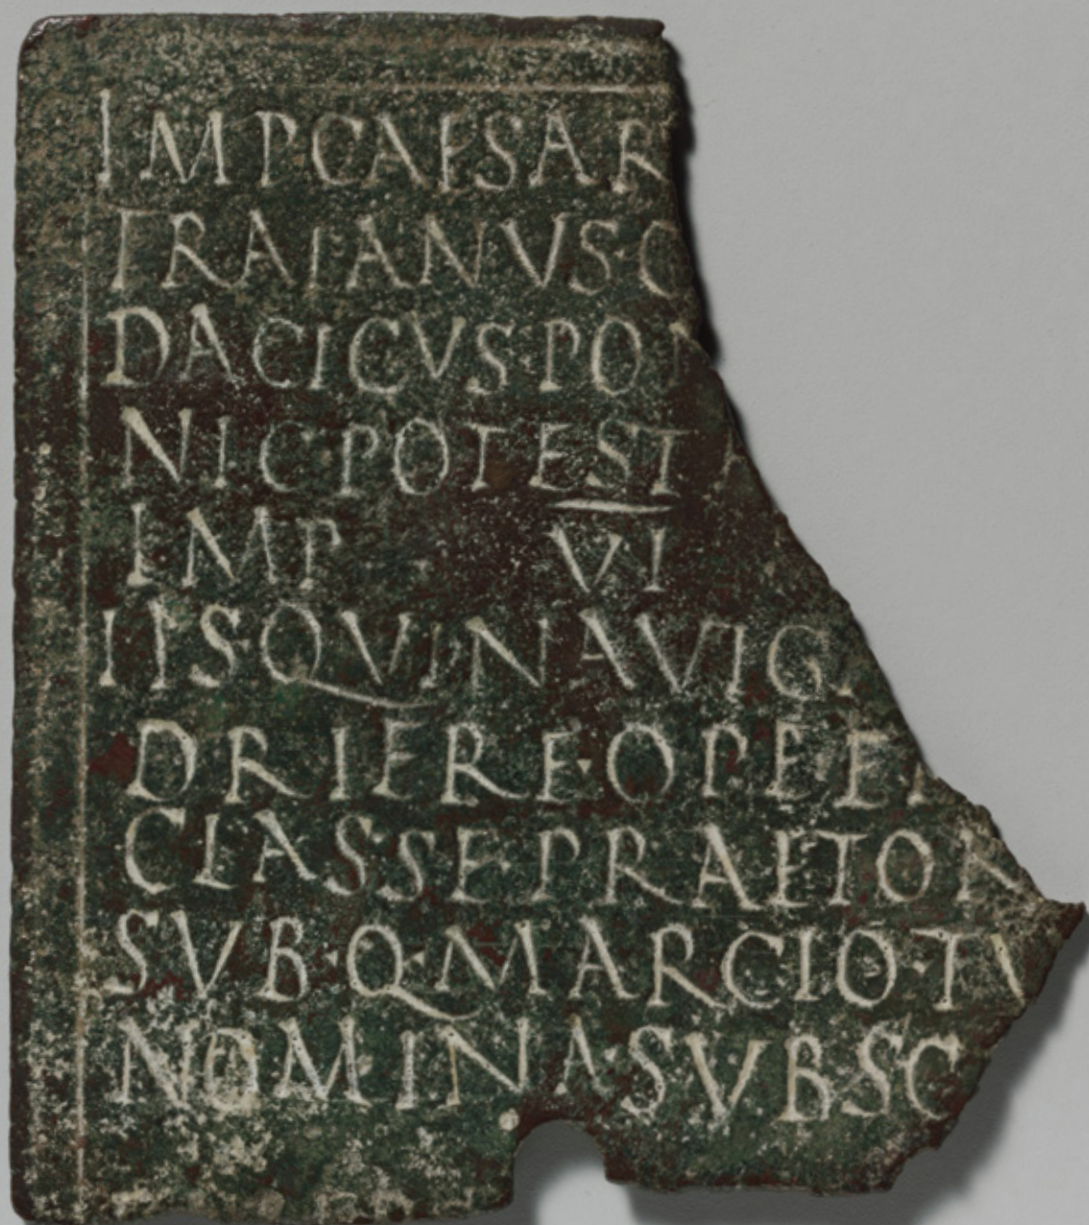 IMP CAESAR
TRAIANVS·O
DACICVS·PON
NIC POTEST
IMP VI
IIS·QVI·NAVIG
DRIERE·OPEE
CLASSE·PRAETOR
SVB·Q·MARCIO·TV
NOMINA·SVBSC